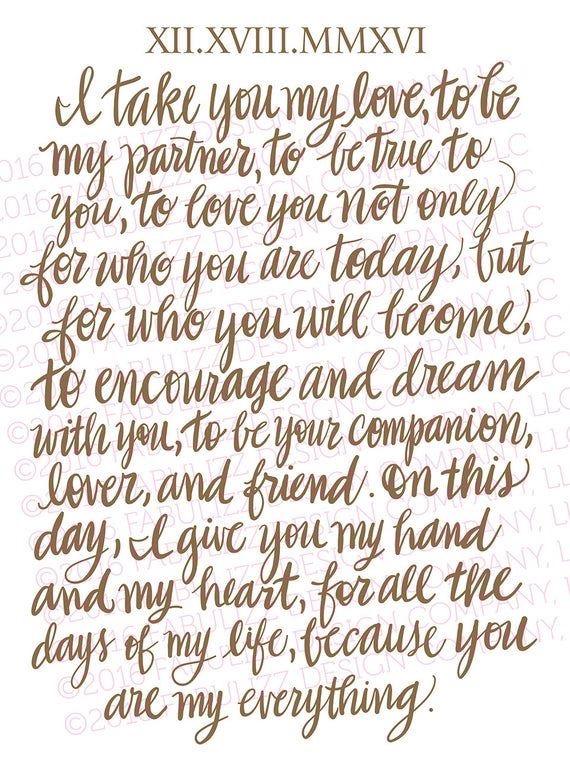 XII.XVIII.MMXVI
I take you my love, to be
my partner, to be true to
you, to love you not only
for who you are today, but
for who you will become,
to encourage and dream
with you, to be your companion,
lover, and friend. On this
day, I give you my hand
and my heart, for all the
days of my life, because you
are my everything.
©2016 FABULIZZ DESIGN COMPANY, LLC